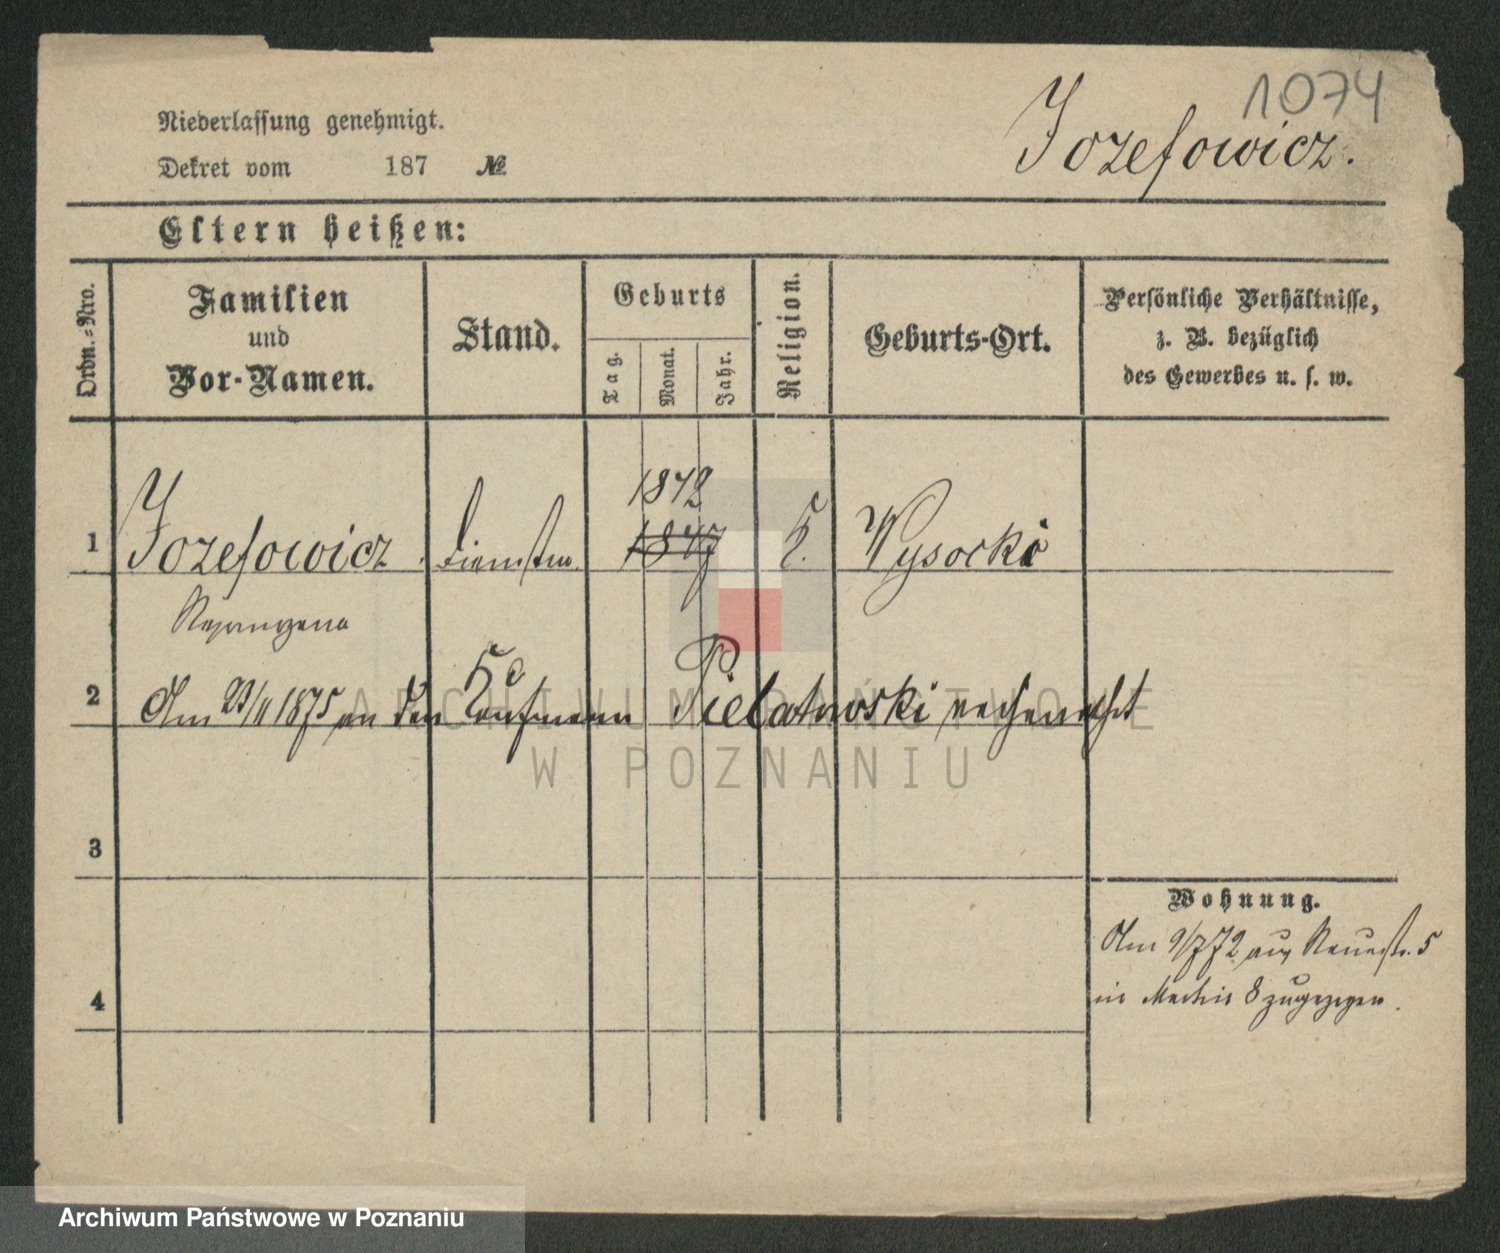 1074
Niederlassung genehmigt.
Jozefowicz.
Dekret vom 187 №
Eltern heißen:
Ordn.-Nro.
Familien
und
Vor-Namen.
Stand.
Geburts
Tag.
Monat.
Jahr.
Religion.
Geburts-Ort.
Persönliche Verhältnisse,
z. B. bezüglich
des Gewerbes u. s. w.
1842
1 Jozefowicz 1847 k. Wysocki
2 Am 23/11 1875 an den Kaufmann verheirathet
ARCHIWUM PAŃSTWOWE
W POZNANIU
3
Wohnung.
Am 9/7 72 aus Neuestr. 5
4
in 8 zugezogen.
Archiwum Państwowe w Poznaniu